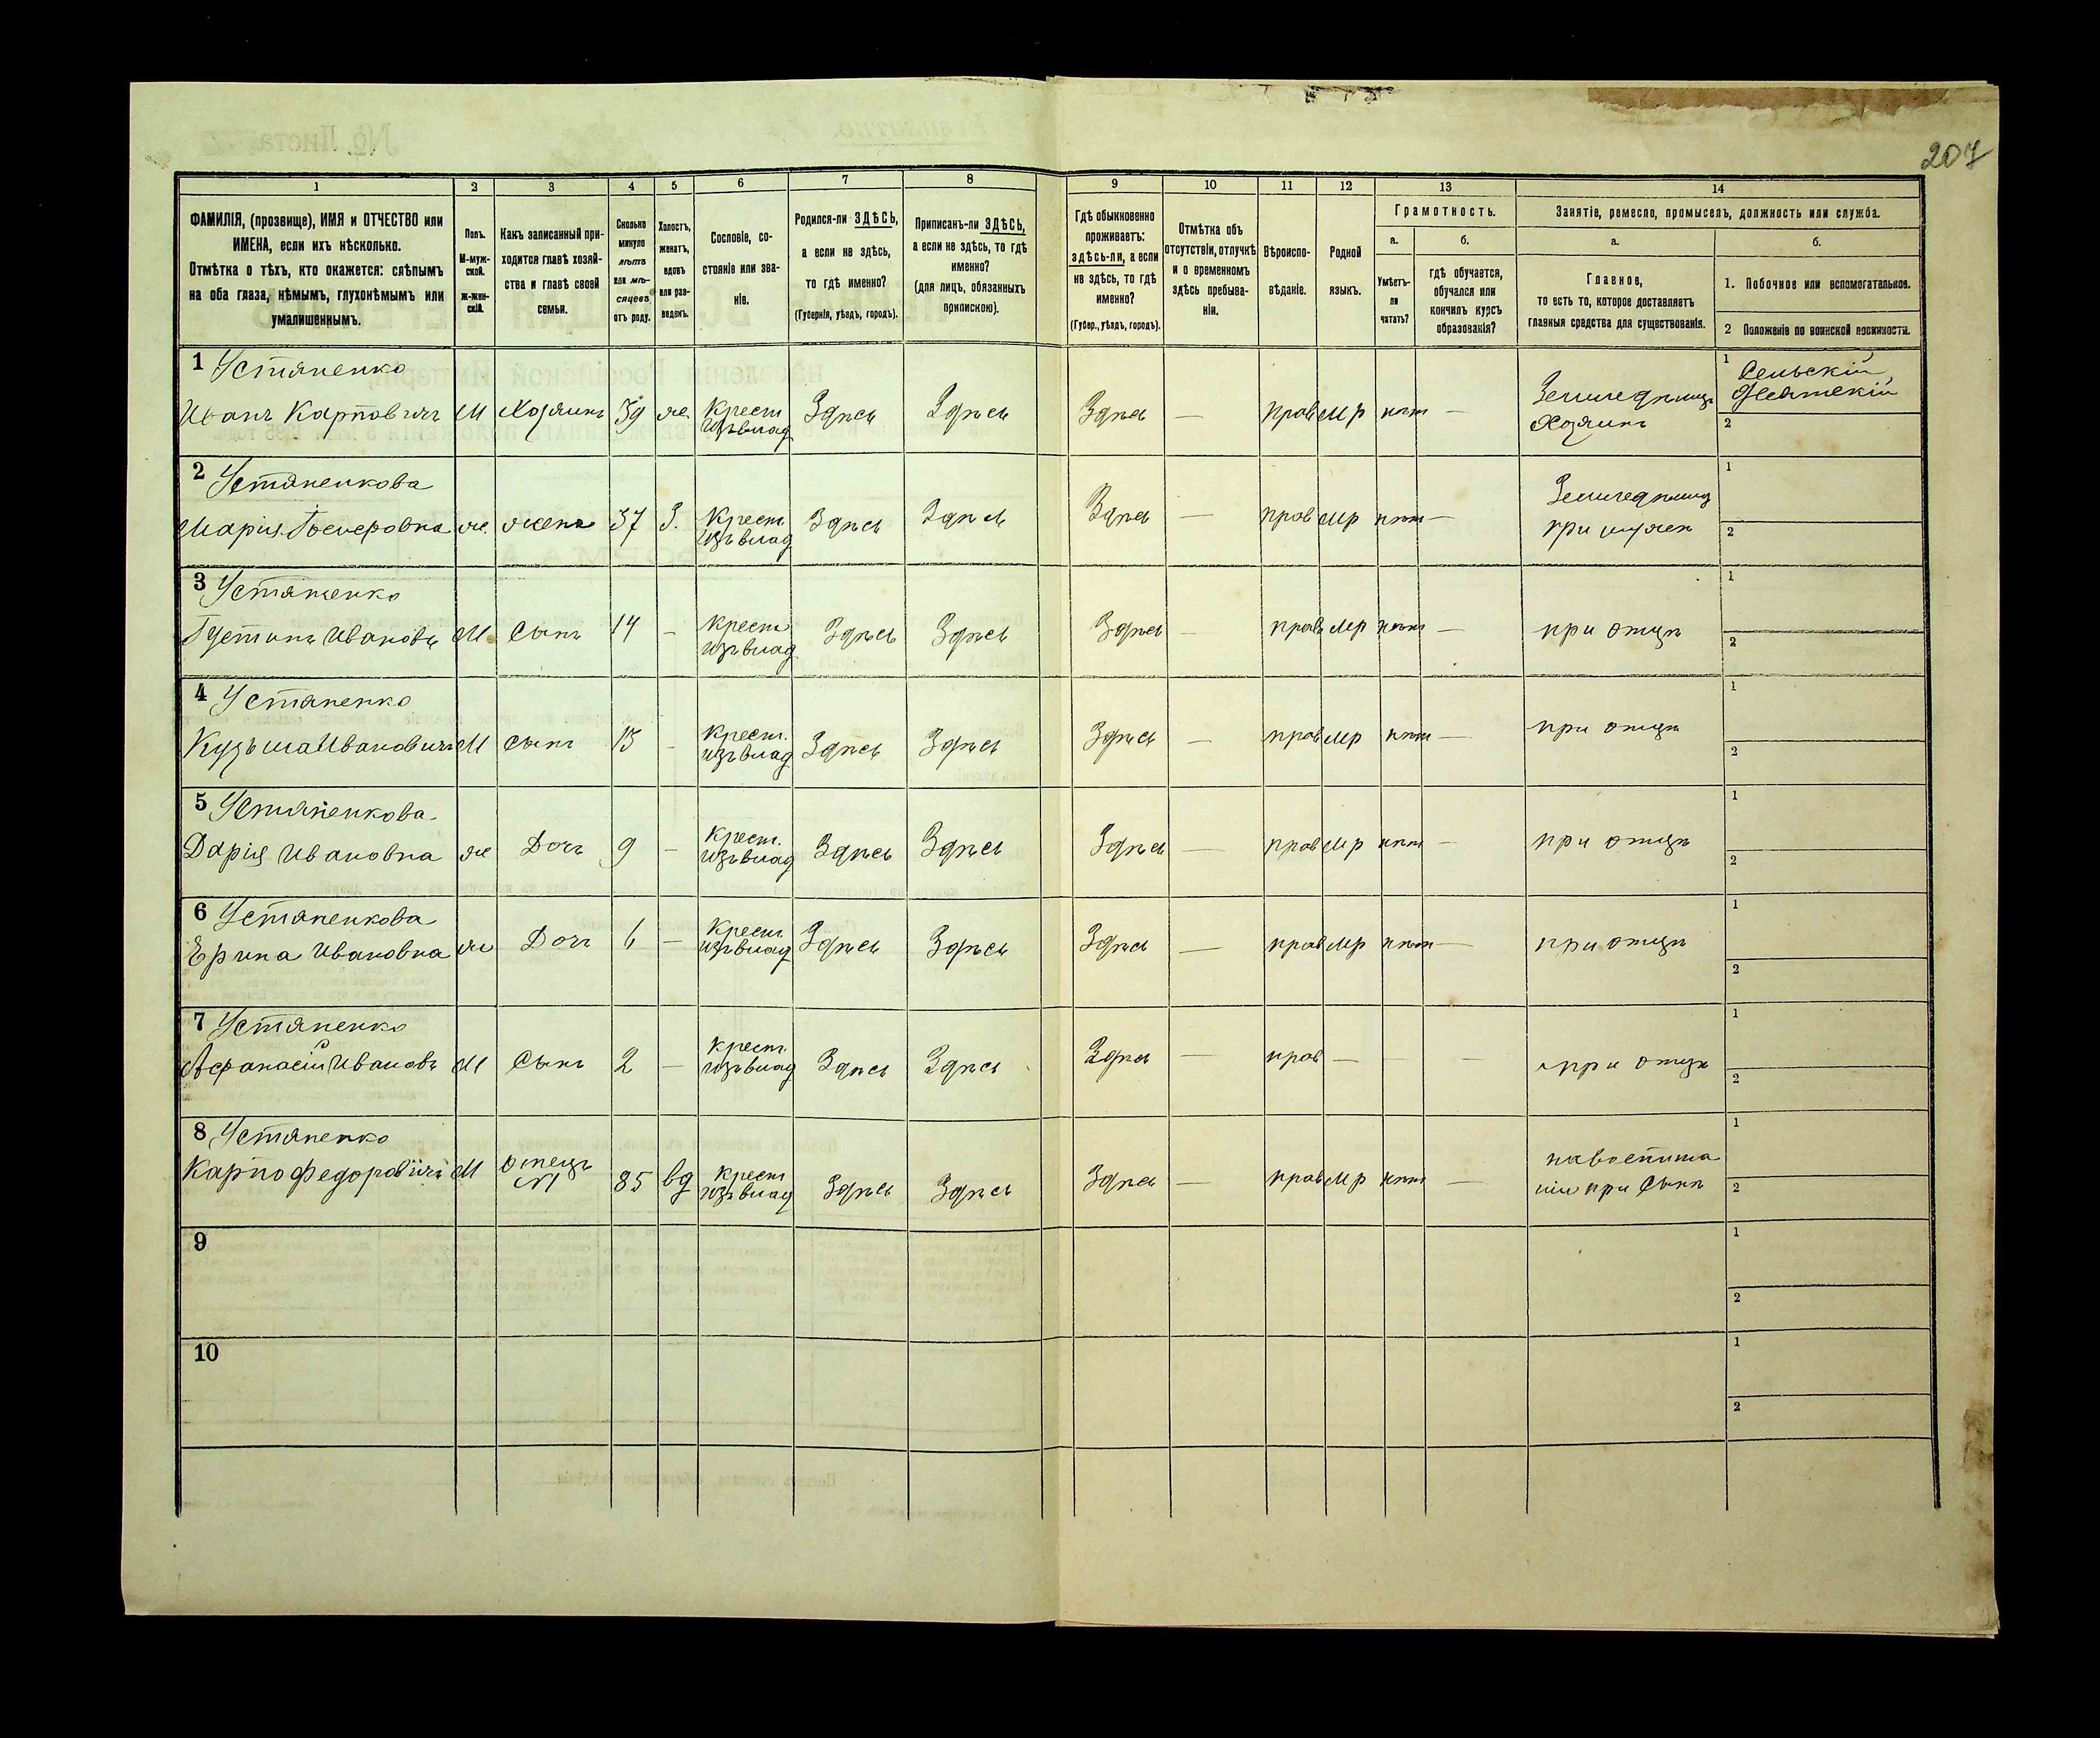 207
1 2 3 4 5 6 7 8 9 10 11 12 13 14
ФАМИЛІЯ, (прозвище), ИМЯ и ОТЧЕСТВО или
ИМЕНА, если ихъ нѣсколько.
Отмѣтка о тѣхъ, кто окажется: слѣпымъ
на оба глаза, нѣмымъ, глухонѣмымъ или
умалишеннымъ.
Полъ.
М-муж-
ской.
Ж-жен-
скій.
Какъ записанный при-
ходится главѣ хозяй-
ства и главѣ своей
семьи.
Сколько
минуло
лѣтъ
или мѣ-
сяцевъ
отъ роду.
Холостъ,
женатъ,
вдовъ
или раз-
веденъ.
Сословіе, со-
стояніе или зва-
ніе.
Родился-ли ЗДѢСЬ,
а если не здѣсь,
то гдѣ именно?
(Губернія, уѣздъ, городъ).
Приписанъ-ли ЗДѢСЬ,
а если не здѣсь, то гдѣ
именно?
(для лицъ, обязанныхъ
припискою).
Гдѣ обыкновенно
проживаетъ:
здѣсь-ли, а если
не здѣсь, то гдѣ
именно?
(Губер., уѣздъ, городъ).
Отмѣтка объ
отсутствіи, отлучкѣ
и о временномъ
здѣсь пребыва-
ніи.
Вѣроиспо-
вѣданіе.
Родной
языкъ.
Грамотность.
а.
Умѣетъ-
ли
читать?
б.
гдѣ обучается,
обучался или
кончилъ курсъ
образованія?
Занятіе, ремесло, промыселъ, должность или служба.
а.
Главное,
то есть то, которое доставляетъ
главныя средства для существованія.
б.
1. Побочное или вспомогательное.
2 Положеніе по воинской повинности.
1 Устяненко
Иванъ Карповичъ М Хозяинъ 39 же Крест изъ влад Здѣсь Здѣсь Здѣсь — прав Мр нѣт — Землед Хозяинъ
1 Сельскій
2
2 Устяненкова
Марія ж. жена 37 З. Крест изъ влад Здѣсь Здѣсь Здѣсь — прав Мр нѣт — при мужѣ
1
2
3 Устяненко
Ивановъ М Сынъ 14 — Крест изъ влад Здѣсь Здѣсь Здѣсь — прав Мр нѣт — при отцѣ
1
2
4 Устяненко
Кузьма Ивановичъ М сынъ 13 — Крест. изъ влад Здѣсь Здѣсь Здѣсь — прав Мр нѣт — при отцѣ
1
2
5 Устяненкова
Дарія Ивановна же Дочъ 9 — Крест. изъ влад Здѣсь Здѣсь Здѣсь — прав Мр нѣт — при отцѣ
1
2
6 Устяненкова
Ерина Ивановна же Дочъ 6 — Крест. изъ влад Здѣсь Здѣсь Здѣсь — прав Мр нѣт — при отцѣ
1
2
7 Устяненко
Афанасій Ивановъ М Сынъ 2 — Крест. изъ влад Здѣсь Здѣсь Здѣсь — прав — — — при отцѣ
1
2
8 Устяненко
Карпо Федоровичъ М отецъ 85 вд Крест изъ влад Здѣсь Здѣсь Здѣсь — прав Мр нѣт — на воспита
ніи при Сынѣ
1
2
9
1
2
10
1
2